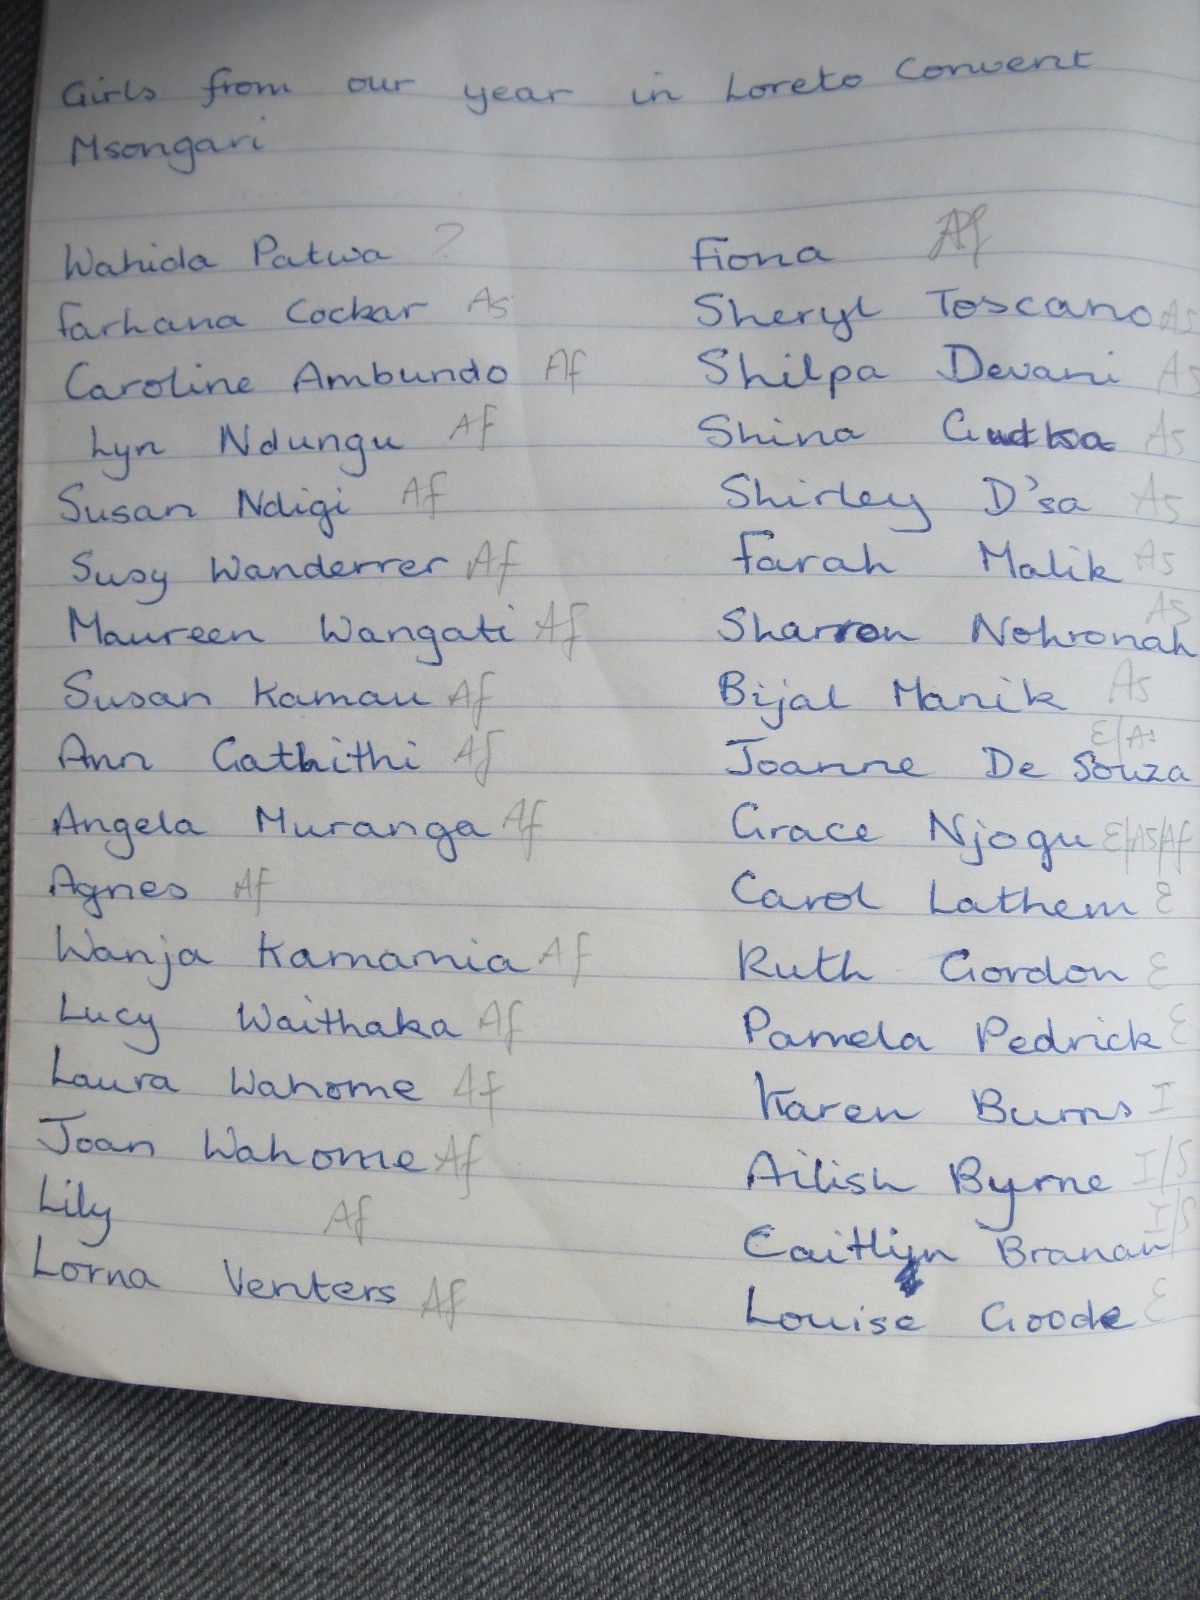 Girls from our year in Loreto Convent
Msongari
Wahida Patwa ?
Farhana Cockar As
Caroline Ambundo Af
Lyn Ndungu Af
Susan Ndigi Af
Susy Wanderrer Af
Maureen Wangati Af
Susan Kamau Af
Ann Gathithi Af
Angela Muranga Af
Agnes Af
Wanja Kamamia Af
Lucy Waithaka Af
Laura Wahome Af
Joan Wahome Af
Lily Af
Lorna Venters Af
Fiona Af
Sheryl Toscano As
Shilpa Devani As
Shina Gudka As
Shirley D'sa As
Farah Malik As
Sharron Nohronah As
Bijal Manik As
Joanne De Souza E/As
Grace Njogu E/As/Af
Carol Lathem E
Ruth Gordon E
Pamela Pedrick E
Karen Burns I
Ailish Byrne I/S
Caitlyn Branan I/S
Louise Goode E